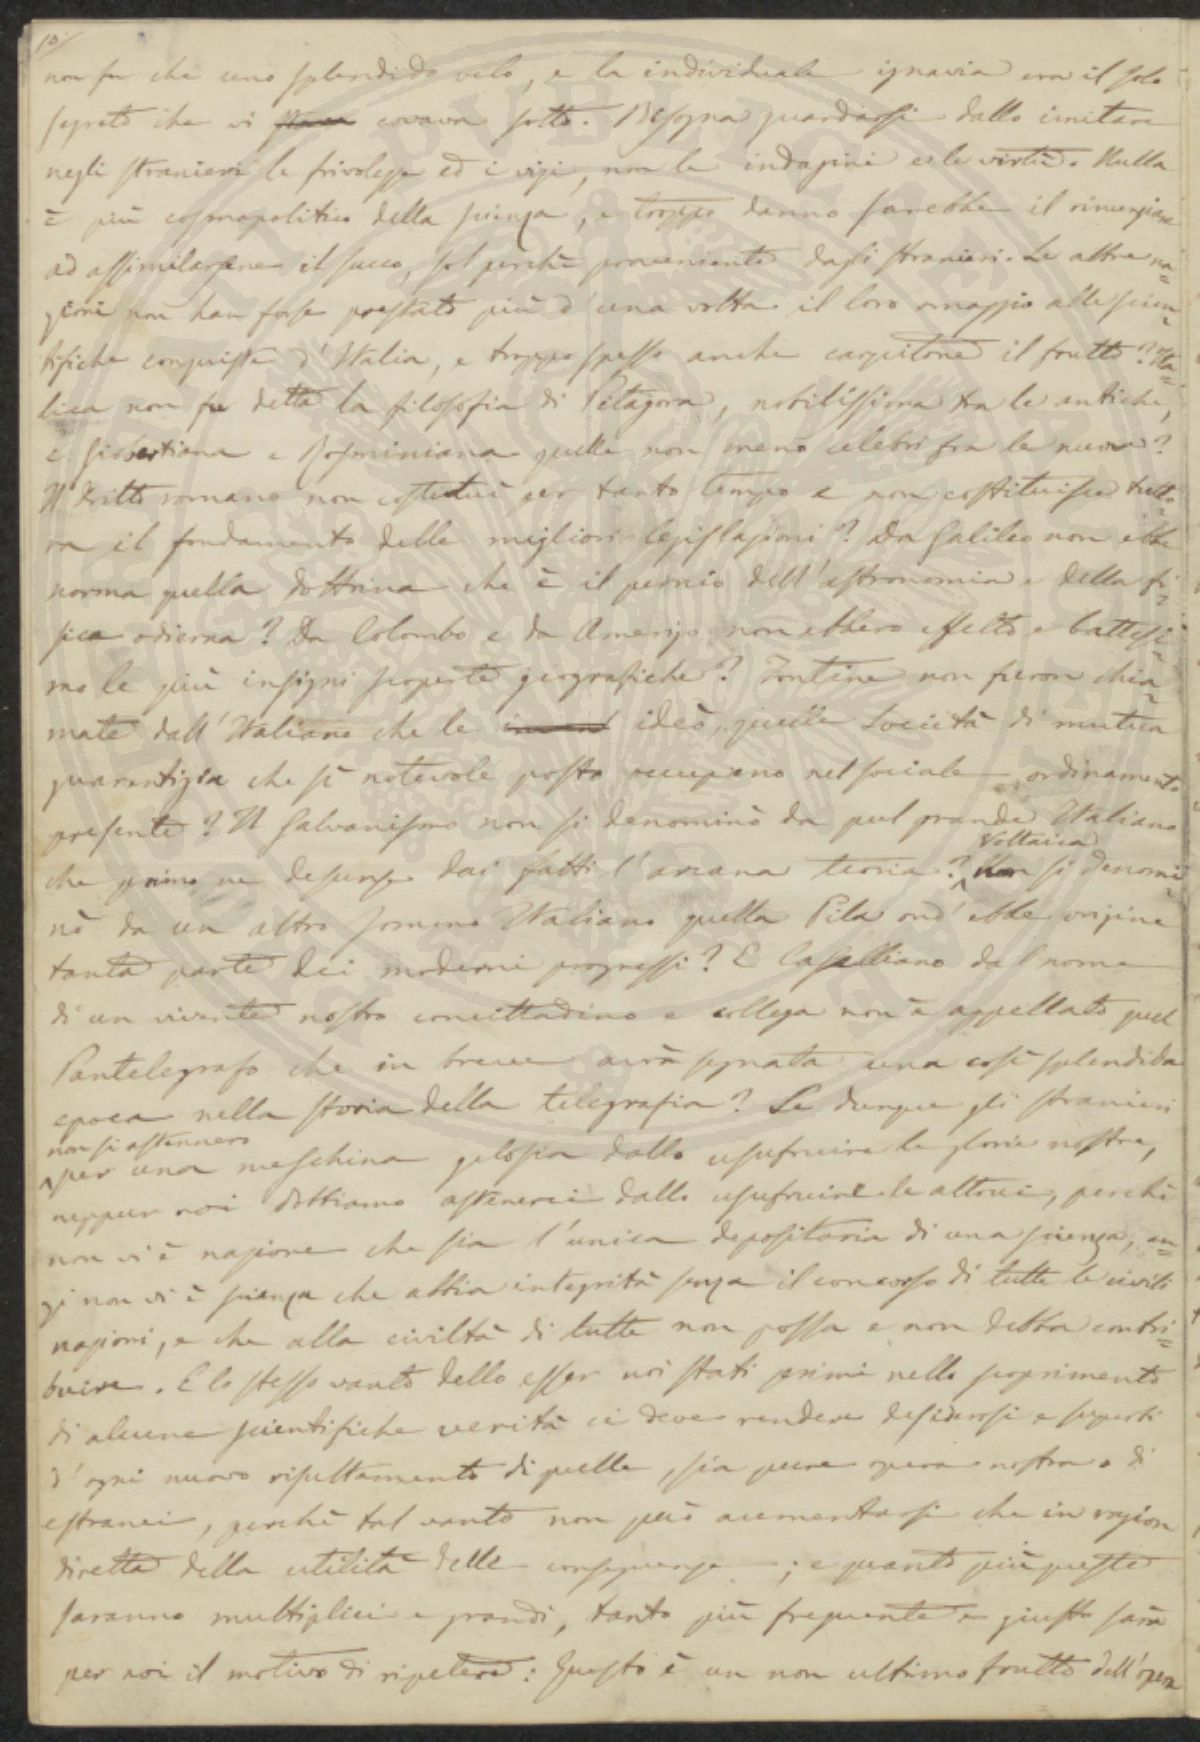 10/
non fu che uno splendido velo, e la individuale ignavia era il solo
segreto che vi covava sotto. Bisogna guardarsi dallo imitare
negli stranieri le frivolezze ed i vizi, non le indagini e le virtù. Nulla
è più cosmopolitico della scienza, e troppo danno sarebbe il rinunziare
ad assimilarsene il succo, sol perchè proveniente dagli stranieri. Le altre na=
zioni non han forse prestato più d'una volta il loro omaggio alle scien=
tifiche conquiste d'Italia, e troppo spesso anche carpitone il frutto? Ita=
lica non fu detta la filosofia di Pitagora, nobilissima tra le antiche,
e giobertiana e Rosminiana quelle non meno celebri fra le nuove?
Il Dritto romano non costituì per tanto tempo e non costituisce tutto=
ra il fondamento delle migliori legislazioni? Da Galileo non ebbe
norma quella dottrina che è il pernio dell'astronomia e della fi=
sica odierna? Da Colombo e da Amerigo non ebbero effetto e battesi=
mo le più insigni scoperte geografiche? Tontine non furon chia=
mate dall'Italiano che le ideò, quelle Società di mutua
guarentigia che sì notevole posto occupano nel sociale ordinamento
presente? Il Galvanismo non si denominò da quel grande Italiano
che primo ne desunse dai fatti l'arcana teoria? Voltaica non si denomi=
nò da un altro sommo Italiano quella Pila ond'ebbe origine
tanta parte dei moderni progressi? E Caselliano dal nome
di un vivente nostro concittadino e collega non è appellato quel
Pantelegrafo che in breve avrà segnata una così splendida
epoca nella storia della telegrafia? Se dunque gli stranieri
non si astennero
per una meschina gelosia dallo usufruire le glorie nostre,
neppur noi dobbiamo astenerci dallo usufruire le altrui, perchè
non vi è nazione che sia l'unica depositaria di una scienza, an=
zi non vi è scienza che abbia integrità senza il concorso di tutte le civili
nazioni, e che alla civiltà di tutte non possa e non debba contri=
buire. E lo stesso vanto dello esser noi stati primi nello scoprimento
di alcune scientifiche verità ci deve rendere desiderosi e superbi
d'ogni nuovo risultamento di quelle, sia pure opera nostra o di
estranei, perchè tal vanto non può aumentarsi che in ragion
diretta della utilità delle conseguenze; e quanto più queste
saranno multiplici e grandi, tanto più frequente e giusto sarà
per noi il motivo di ripetere: Questo è un non ultimo frutto dell'opera